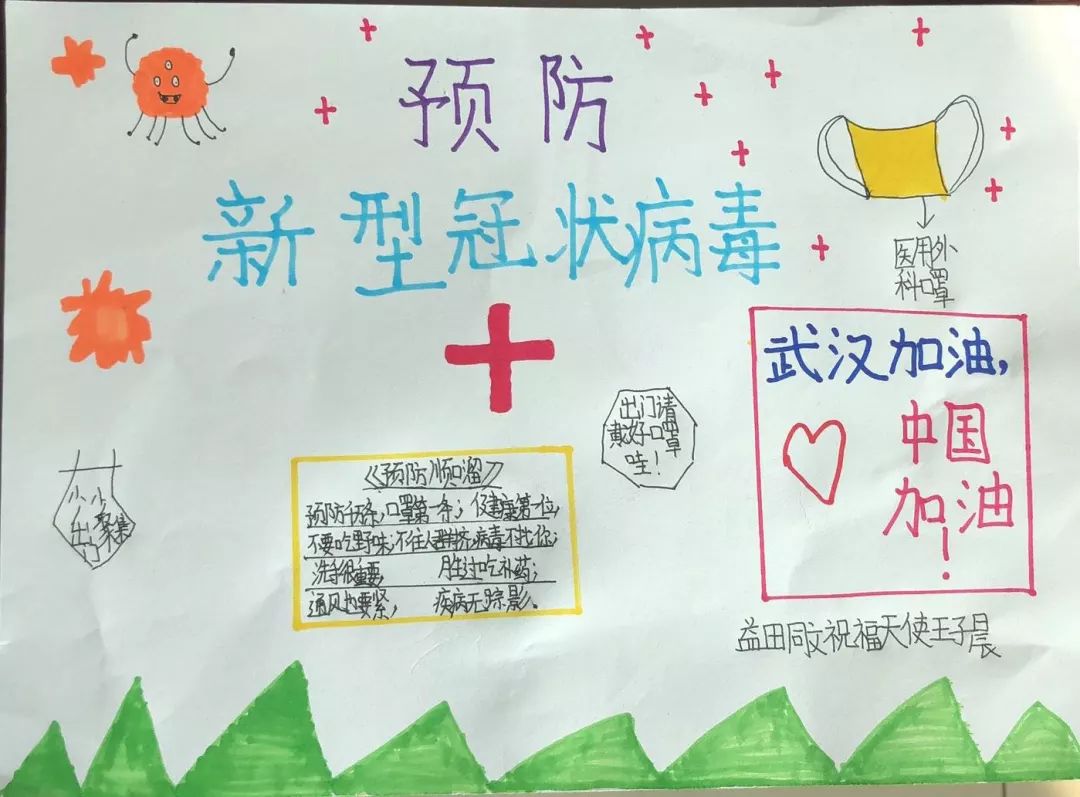 预防
新型冠状病毒
医用外
科口罩
武汉加油,
中国
加油!
出门请
戴好口罩
哇!
少出门
少聚集
《预防顺口溜》
预防 条,口罩第一条; 健康第一位,
不要吃野味;不往人群挤,病毒不找你;
洗手很重要, 胜过吃补药;
通风也要紧, 疾病无踪影。
益田同文祝福天使王子晨